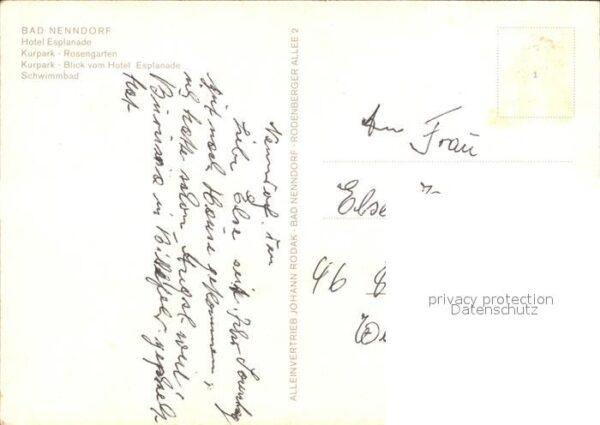 BAD NENNDORF
Hotel Esplanade
Kurpark - Rosengarten
Kurpark - Blick vom Hotel Esplanade
Schwimmbad
Nenndorf, den
Liebe Else seit Ihr Sonntag
gut nach Hause gekommen,
hatte schon Angst weil
in
hat
ALLEINVERTRIEB JOHANN RODAK · BAD NENNDORF · RODENBERGER ALLEE 2
1
An Frau
Else
46
privacy protection
Datenschutz